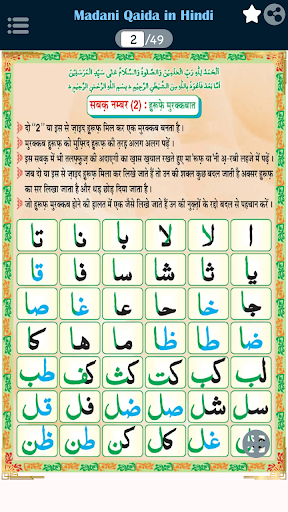 Madani Qaida in Hindi
2 /49
اَلْحَمْدُ لِلّٰهِ رَبِّ الْعٰلَمِيْنَ وَالصَّلٰوةُ وَالسَّلَامُ عَلٰى سَيِّدِ الْمُرْسَلِيْنَ
اَمَّا بَعْدُ فَاَعُوْذُ بِاللّٰهِ مِنَ الشَّيْطٰنِ الرَّجِيْمِ بِسْمِ اللّٰهِ الرَّحْمٰنِ الرَّحِيْمِ
सबक़ नम्बर (2) : हुरूफ़े मुरक्कबात
दो "2" या इस से ज़ाइद हुरूफ़ मिल कर एक मुरक्कब बनता है।
मुरक्कब हुरूफ़ को मुफ़्रिद हुरूफ़ की तरह अलग अलग पढ़ें।
इस सबक़ में भी तलफ़्फ़ुज़ की अदाएगी का ख़ास ख़याल रखते हुए मा'रूफ़ या'नी अ़-रबी लहजे में पढ़ें।
जब दो या इस से ज़ाइद हुरूफ़ मिला कर लिखे जाते हैं तो उन की शक्ल कुछ बदल जाती है अक्सर हुरूफ़
का सर लिखा जाता है और धड़ छोड़ दिया जाता है।
जो हुरूफ़ मुरक्कब होने की हालत में एक जैसे लिखे जाते हैं उन की नुक़्तों के रद्दो बदल से पहचान करें।
ا لا لا با نا تا
يا ثا شا سا فا قا
جا خا حا عا غا صا
ضا طا ظا ما ها كا
لب كب كت كث كف طب
سل شل صل ضل فل قل
غل كل كن طن ظن